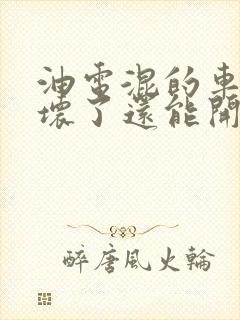 油電混的車
壞了還能開
醉唐風火輪